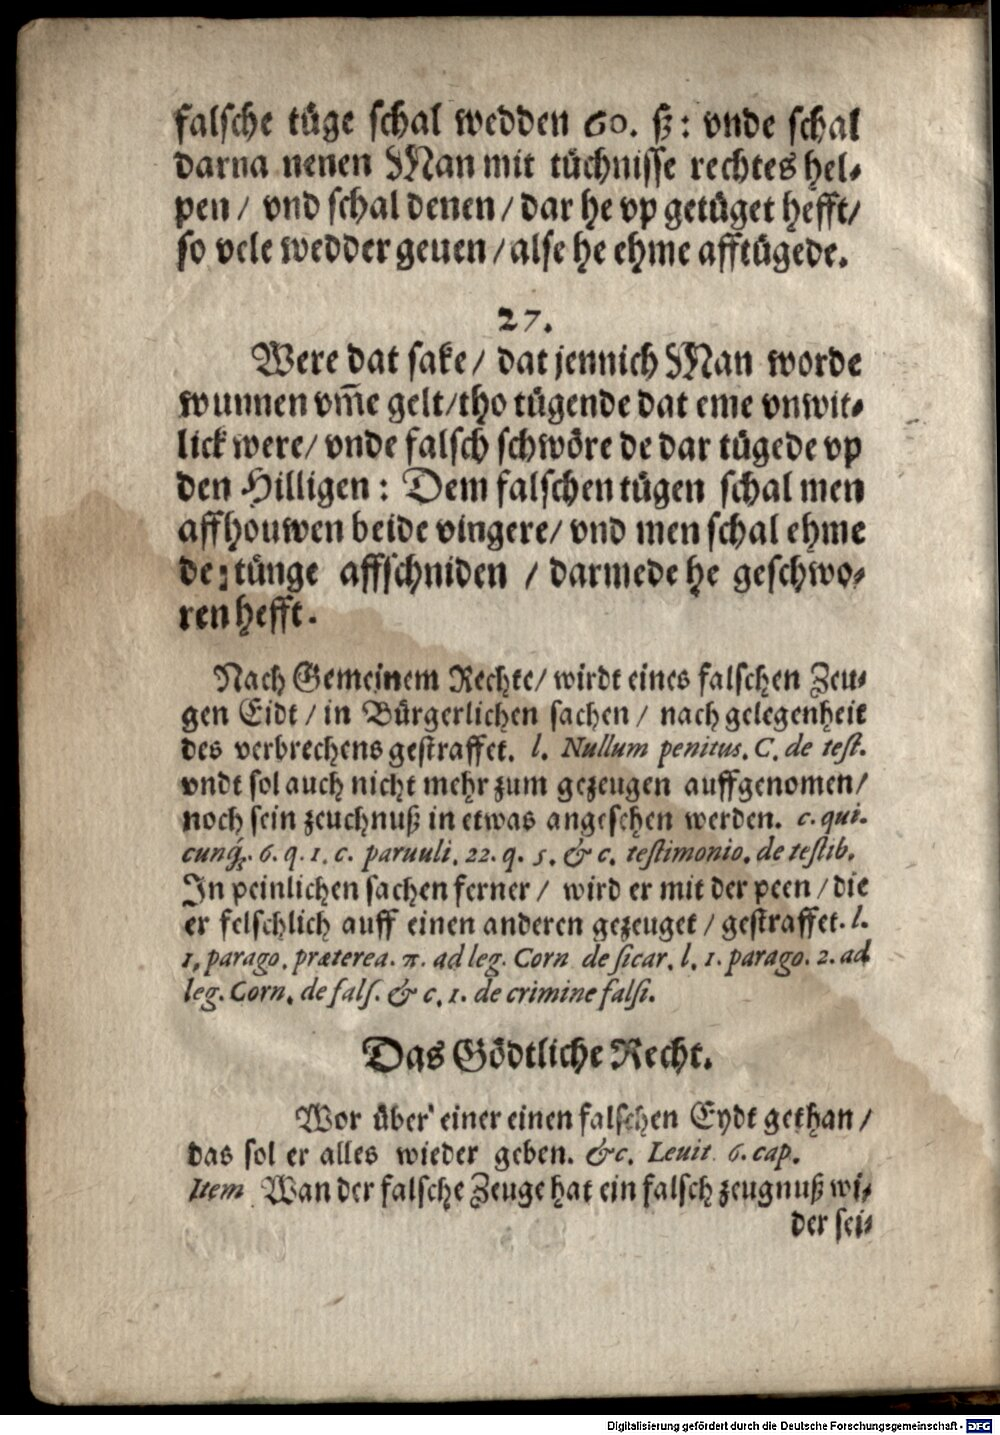 falsche tüge schal wedden 60. ß: vnde schal
darna nenen Man mit tüchnisse rechtes hel-
pen / vnd schal denen / dar he vp getüget hefft/
so vele wedder geuen / alse he ehme afftügede.
27.
Were dat sake / dat jennich Man worde
wunnen vm̃e gelt/tho tügende dat eme vnwit-
lick were/ vnde falsch schwöre de dar tügede vp
den Hilligen: Dem falschen tügen schal men
affhouwen beide vingere/ vnd men schal ehme
de tünge affschniden / darmede he geschwo-
ren hefft.
Nach Gemeinem Rechte/ wirdt eines falschen Zeu-
gen Eidt / in Bürgerlichen sachen / nach gelegenheit
des verbrechens gestraffet. l. Nullum penitus. C. de test.
vndt sol auch nicht mehr zum gezeugen auffgenomen/
noch sein zeuchnuß in etwas angesehen werden. c. qui-
cunq́;. 6. q. 1. c. paruuli. 22. q. 5. & c. testimonio. de testib.
In peinlichen sachen ferner / wird er mit der peen / die
er felschlich auff einen anderen gezeuget / gestraffet. l.
1. parago. præterea. π. ad leg. Corn de sicar. l. 1. parago. 2. ad
leg. Corn. de fals. & c. 1. de crimine falsi.
Das Gödtliche Recht.
Wor über einer einen falschen Eydt gethan /
das sol er alles wieder geben. &c. Leuit. 6. cap.
Item Wan der falsche Zeuge hat ein falsch zeugnuß wi-
der sei-
Digitalisierung gefördert durch die Deutsche Forschungsgemeinschaft - DFG